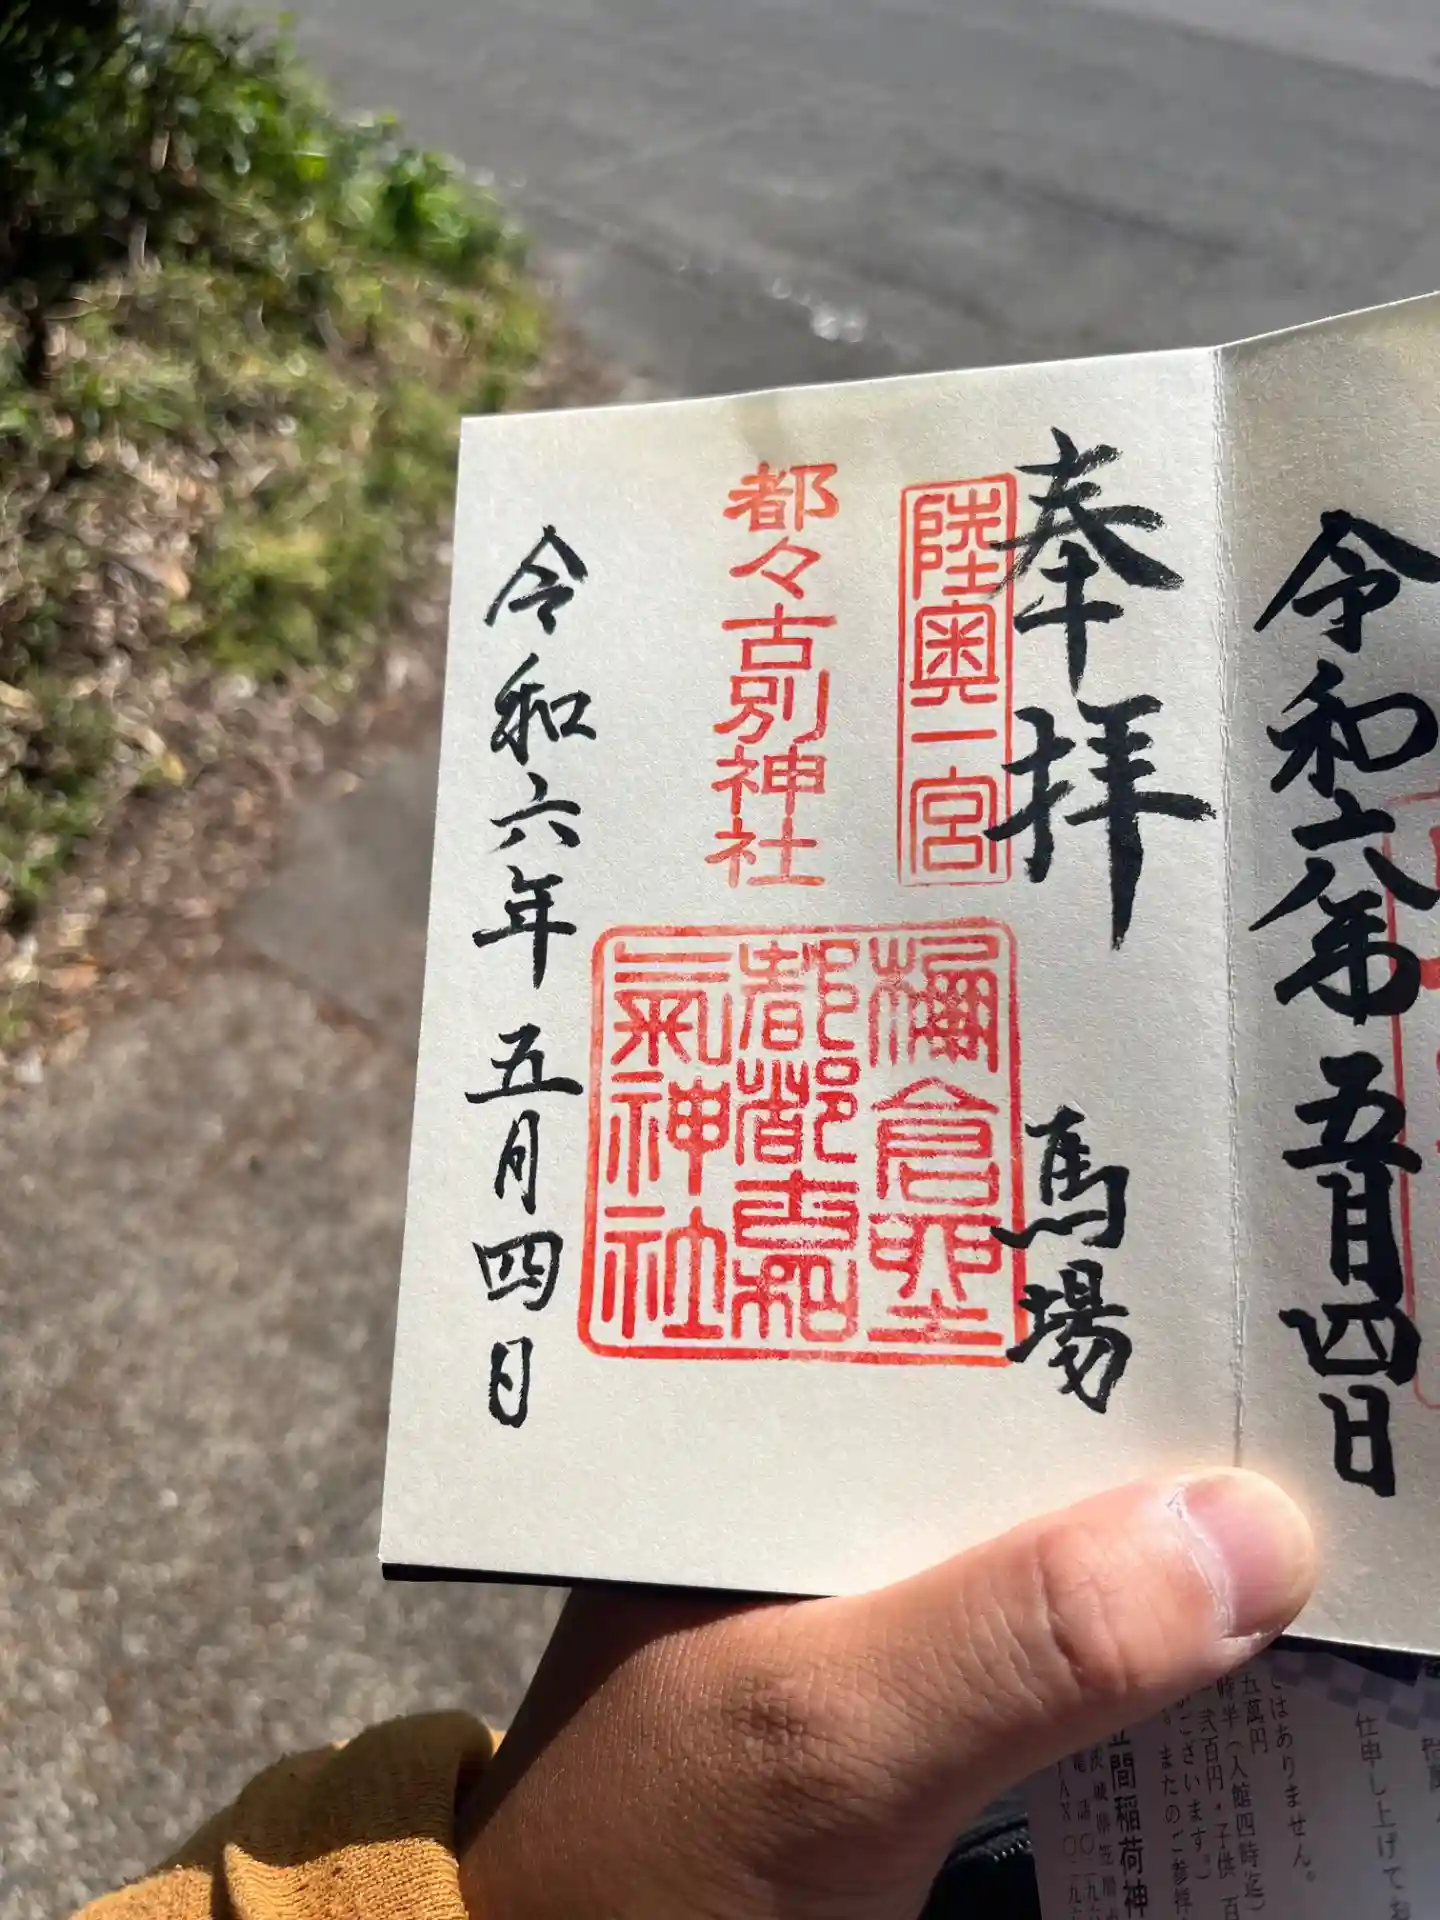 令和六年五月四日
奉拝 馬場
陸奥一宮
都々古別神社
倉
都都古和
氣神社
令和六年五月四日
仕申し上げてお
ではありません。
五萬円
時半(入館四時迄)
弐百円・子供 百
ございます。)
またのご参拝
間稲荷神